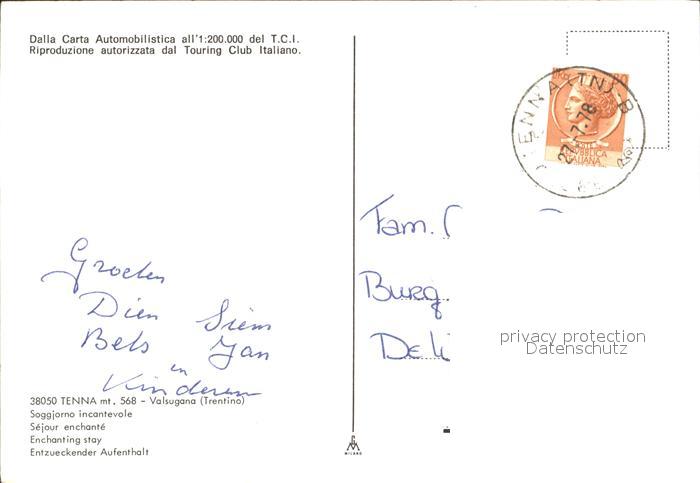 Dalla Carta Automobilistica all'1:200.000 del T.C.I.
Riproduzione autorizzata dal Touring Club Italiano.
TENNA (TN) - B
27-7-78
POSTE
REPUBBLICA
ITALIANA
Fam.
Burg.
Deli
privacy protection
Datenschutz
Groeten
Dien Siem
Bels Jan
en
Kinderen
38050 TENNA mt. 568 - Valsugana (Trentino)
Soggiorno incantevole
Séjour enchanté
Enchanting stay
Entzueckender Aufenthalt
MILANO